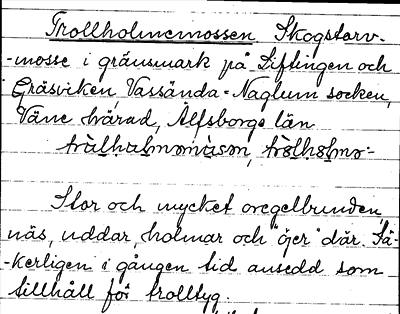 Trollholmemossen Skogstorv-
-mosse i gränsmark på Liftingen och
Gräsviken, Vassända-Naglum socken,
Väne härad, Älfsborgs län

Stor och mycket oregelbunden,
näs, uddar, holmar och "öjer" där. Sä-
-kerligen i gången tid ansedd som
tillhåll för trolltyg.